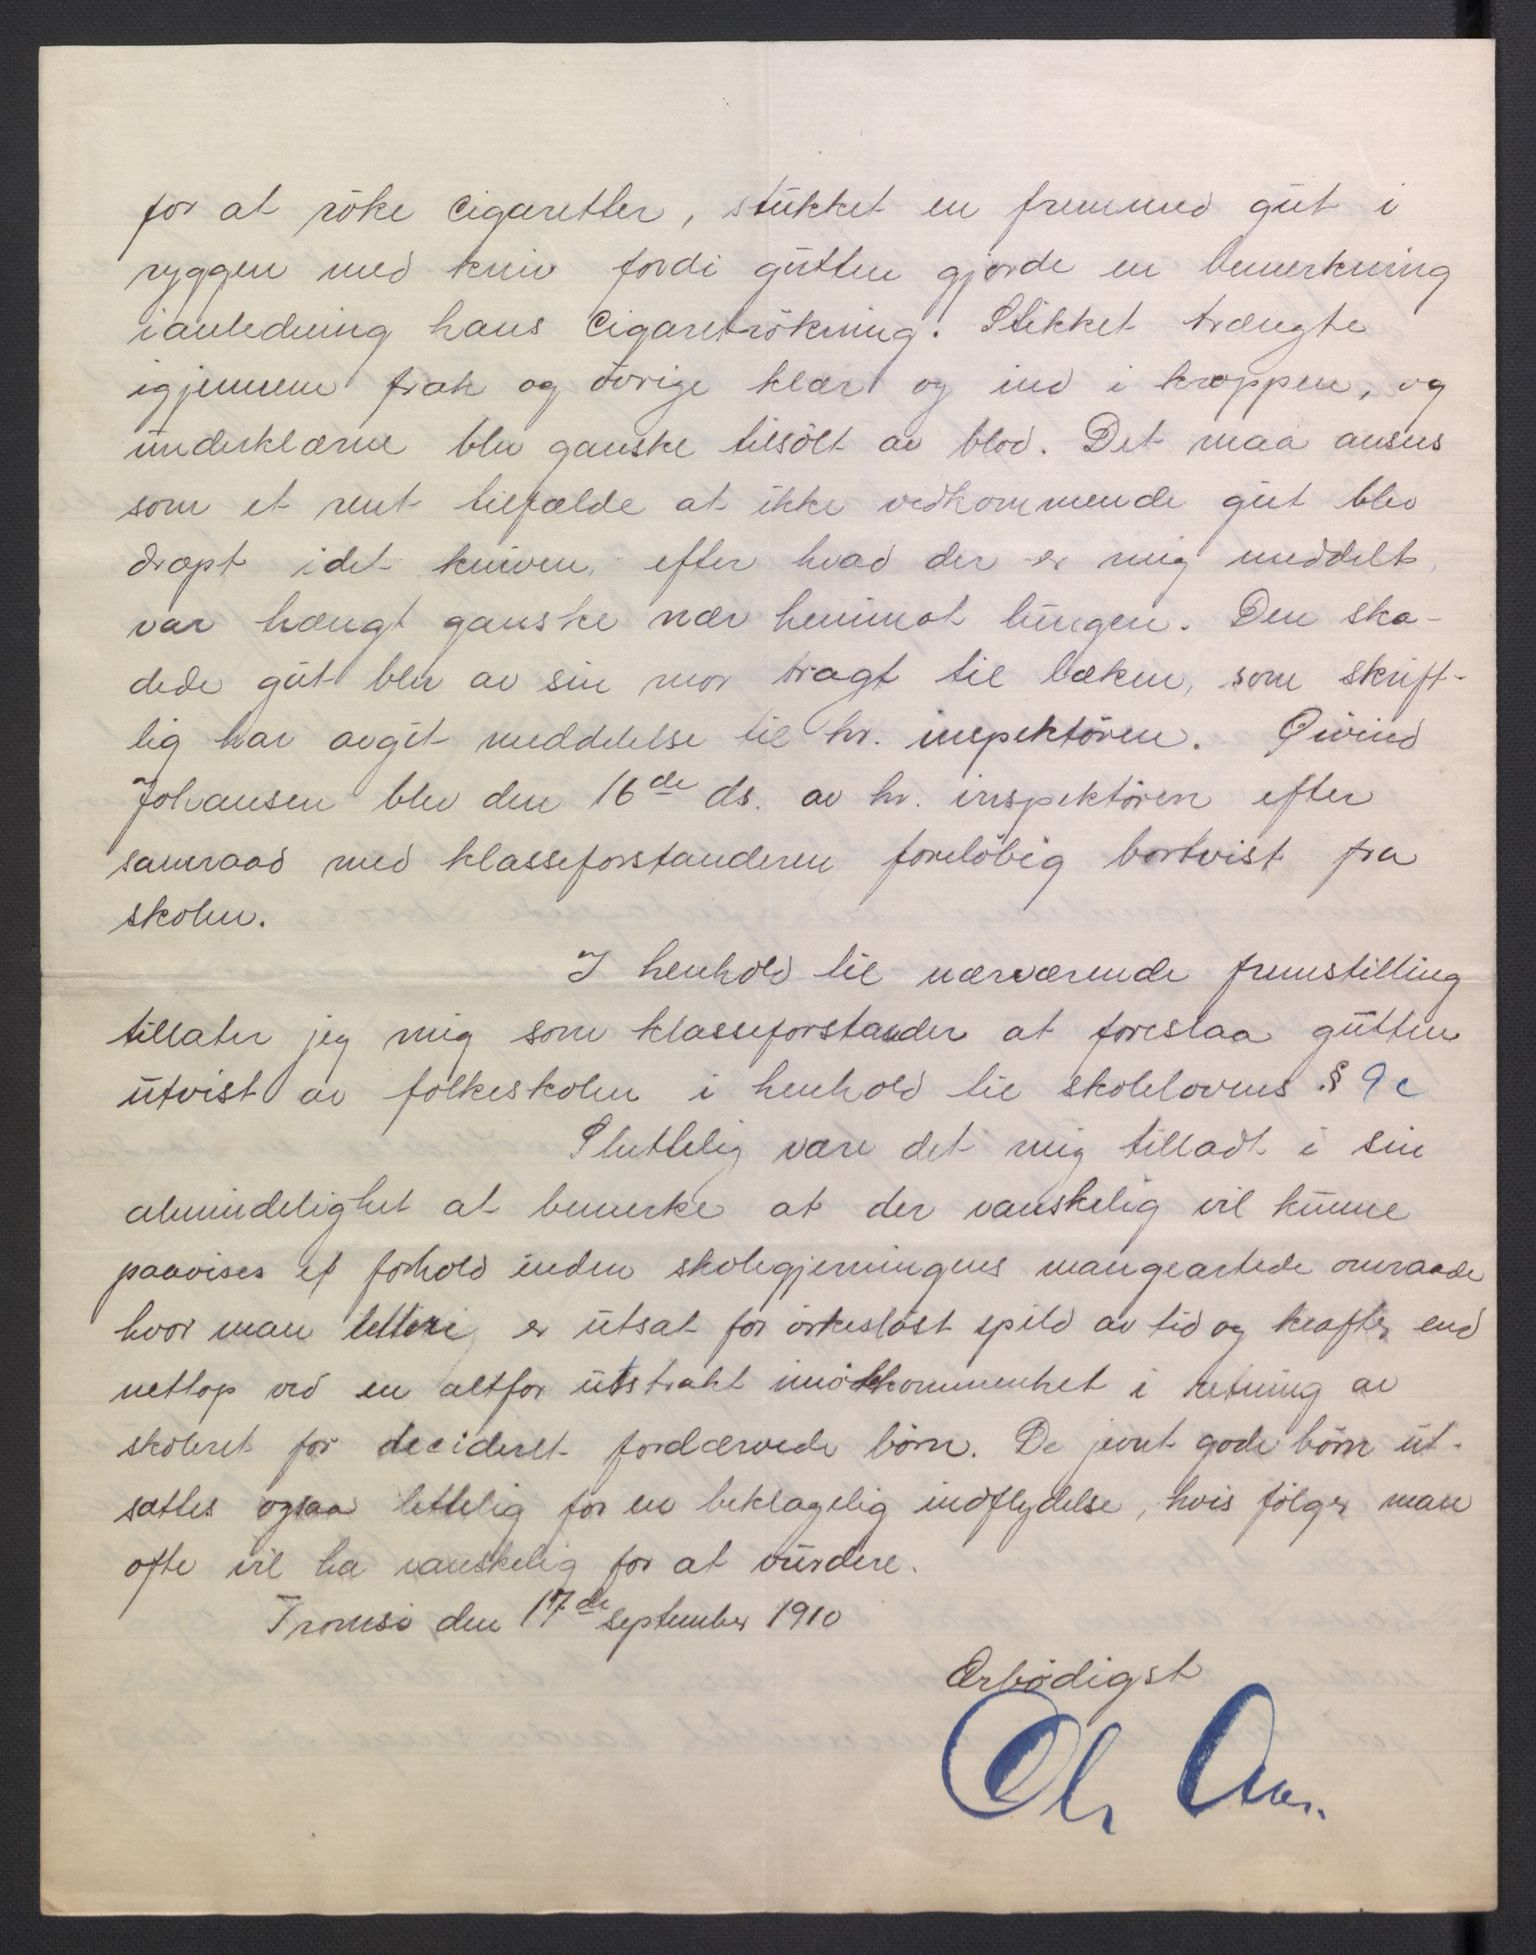 for at röke Cigaretter, stukket en fremmed gut i
ryggen med kniv fordi gutten gjorde en bemerkning
ianledning hans Cigaretrökning. Stikket trængte
igjennem frak og övrige klær og ind i kroppen, og
underklærne blev ganske tilsölt av blod. Det maa anses
som et rent tilfælde at ikke vedkommende gut blev
dræpt idet kniven, efter hvad der er mig meddelt,
var trængt ganske nær henimot lungen. Den ska-
dede gut blev av sin mor bragt til læken, som skrift-
lig har avgit meddelelse til hr. inspektören. Øivind
Johansen blev den 16de ds. av hr. inspektören efter
samraad med klasseforstanderen forelöbig bortvist fra
skolen.
I henhold til nærværende fremstilling
tillater jeg mig som klasseforstander at foreslaa gutten
utvist av folkeskolen i henhold til skolelovens § 9 c
Sluttelig være det mig tilladt i sin
almindelighet at bemerke at der vanskelig vil kunne
paavises et forhold inden skolegjerningens mangeartede omraade
hvor man lettere er utsat for örkeslöst spild av tid og kræfter end
nettop ved en altfor utstrakt imötekommenhet i retning av
skoleret for decideret fordærvede börn. De jevnt gode börn ut-
sættes ogsaa lettelig for en beklagelig indflydelse, hvis fölger man
ofte vil ha vanskelig for at vurdere.
Tromsö den 17de september 1910
Ærbödigst
Ol.